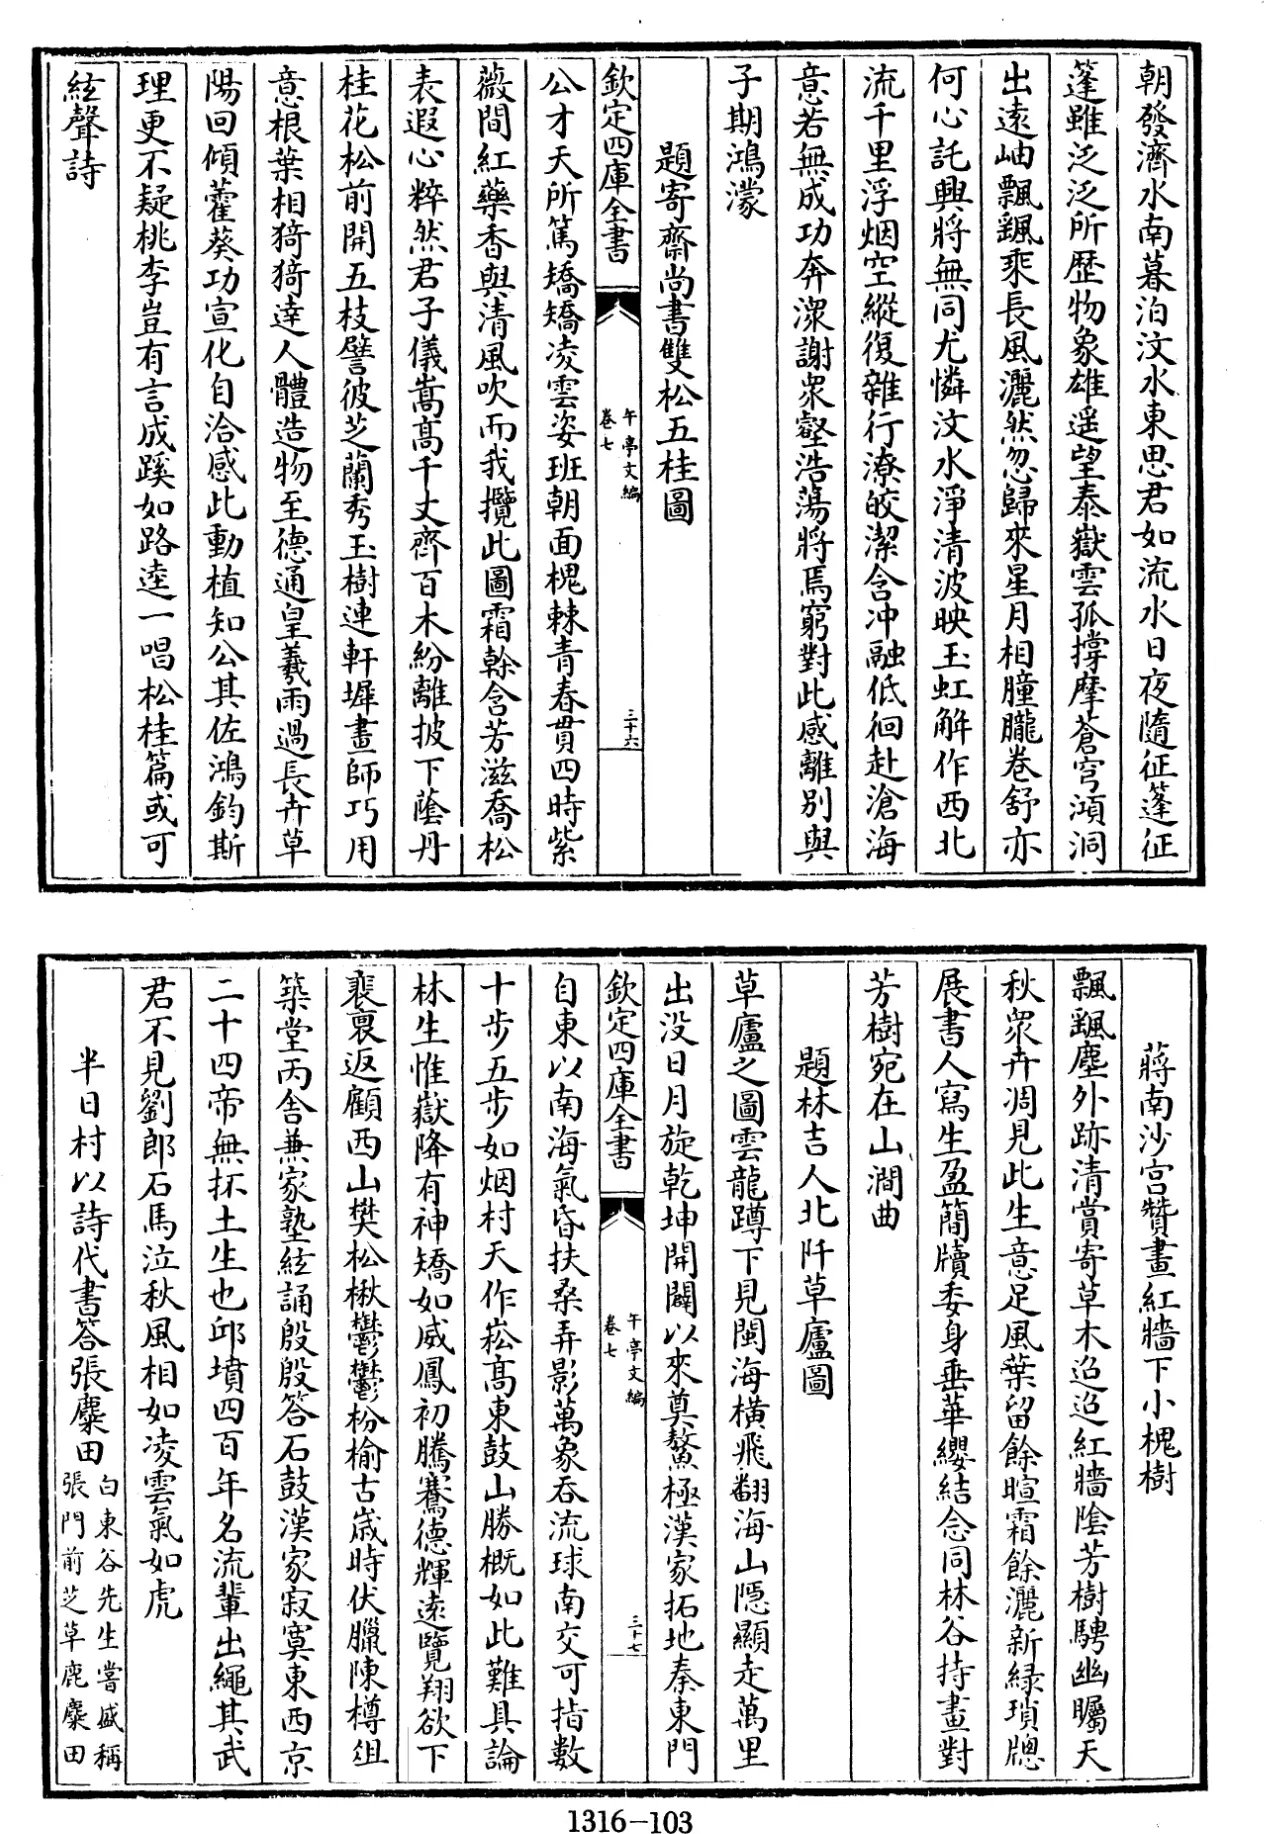 朝發濟水南暮泊汶水東思君如流水日夜隨征蓬征
蓬雖泛泛所歷物象雄遥望泰嶽雲孤撐摩蒼穹澒洞
出遠岫飄颻乘長風灑然忽歸來星月相朣朧卷舒亦
何心託興將無同尤憐汶水淨清波映玉虹解作西北
流千里浮烟空縱復雜行潦皎潔含冲融低徊赴滄海
意若無成功奔潨謝衆壑浩蕩將焉窮對此感離别與
子期鴻濛
題寄齋尚書雙松五桂圖
欽定四庫全書
午亭文編
卷七
三十六
公才天所篤矯矯凌雲姿班朝面槐棘青春貫四時紫
薇間紅藥香與清風吹而我攬此圖霜幹含芳滋喬松
表遐心粹然君子儀嵩高千丈齊百木紛離披下蔭丹
桂花松前開五枝譬彼芝蘭秀玉樹連軒墀畫師巧用
意根葉相猗猗達人體造物至德通皇羲雨過長卉草
陽回傾藿葵功宣化自洽感此動植知公其佐鴻鈞斯
理更不疑桃李豈有言成蹊如路逵一唱松桂篇或可
絃聲詩
蔣南沙宫贊畫紅牆下小槐樹
飄颻塵外跡清賞寄草木迢迢紅牆陰芳樹騁幽矚天
秋衆卉凋見此生意足風葉留餘暄霜餘灑新緑瑣牕
展書人寫生盈簡牘委身垂華纓結念同林谷持畫對
芳樹宛在山澗曲
題林吉人北阡草廬圖
草廬之圖雲龍蹲下見閩海横飛翻海山隱顯走萬里
出没日月旋乾坤開闢以來奠鰲極漢家拓地秦東門
欽定四庫全書
午亭文編
卷七
三十七
自東以南海氣昏扶桑弄影萬象吞流球南交可指數
十步五步如烟村天作崧高東鼓山勝概如此難具論
林生惟嶽降有神矯如威鳳初騰騫德輝遠覽翔欲下
裴褱返顧西山樊松楸鬱鬱枌榆古歲時伏臘陳樽俎
築堂丙舍兼家塾絃誦殷殷答石鼓漢家寂寞東西京
二十四帝無抔土生也邱墳四百年名流輩出繩其武
君不見劉郎石馬泣秋風相如凌雲氣如虎
半日村以詩代書答張麋田
白東谷先生嘗盛稱
張門前芝草鹿麋田
1316-103